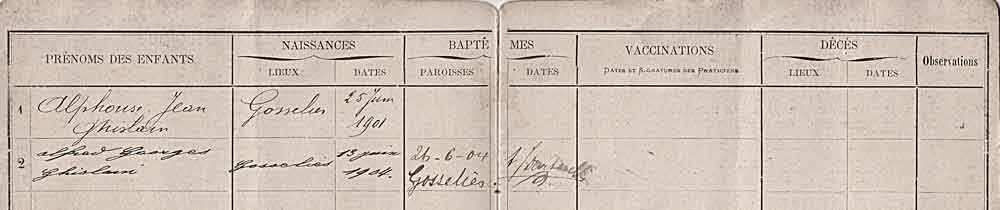 PRÉNOMS DES ENFANTS NAISSANCES BAPTÊMES VACCINATIONS DÉCÈS Observations
LIEUX DATES PAROISSES DATES DATES ET SIGNATURES DES PRATICIENS LIEUX DATES
1 Alphonse Jean Gosselies 25 Juin
Ghislain 1901
2 alfred Georges Gosselies 13 juin 26-6-04
Ghislain 1904. Gosseliès